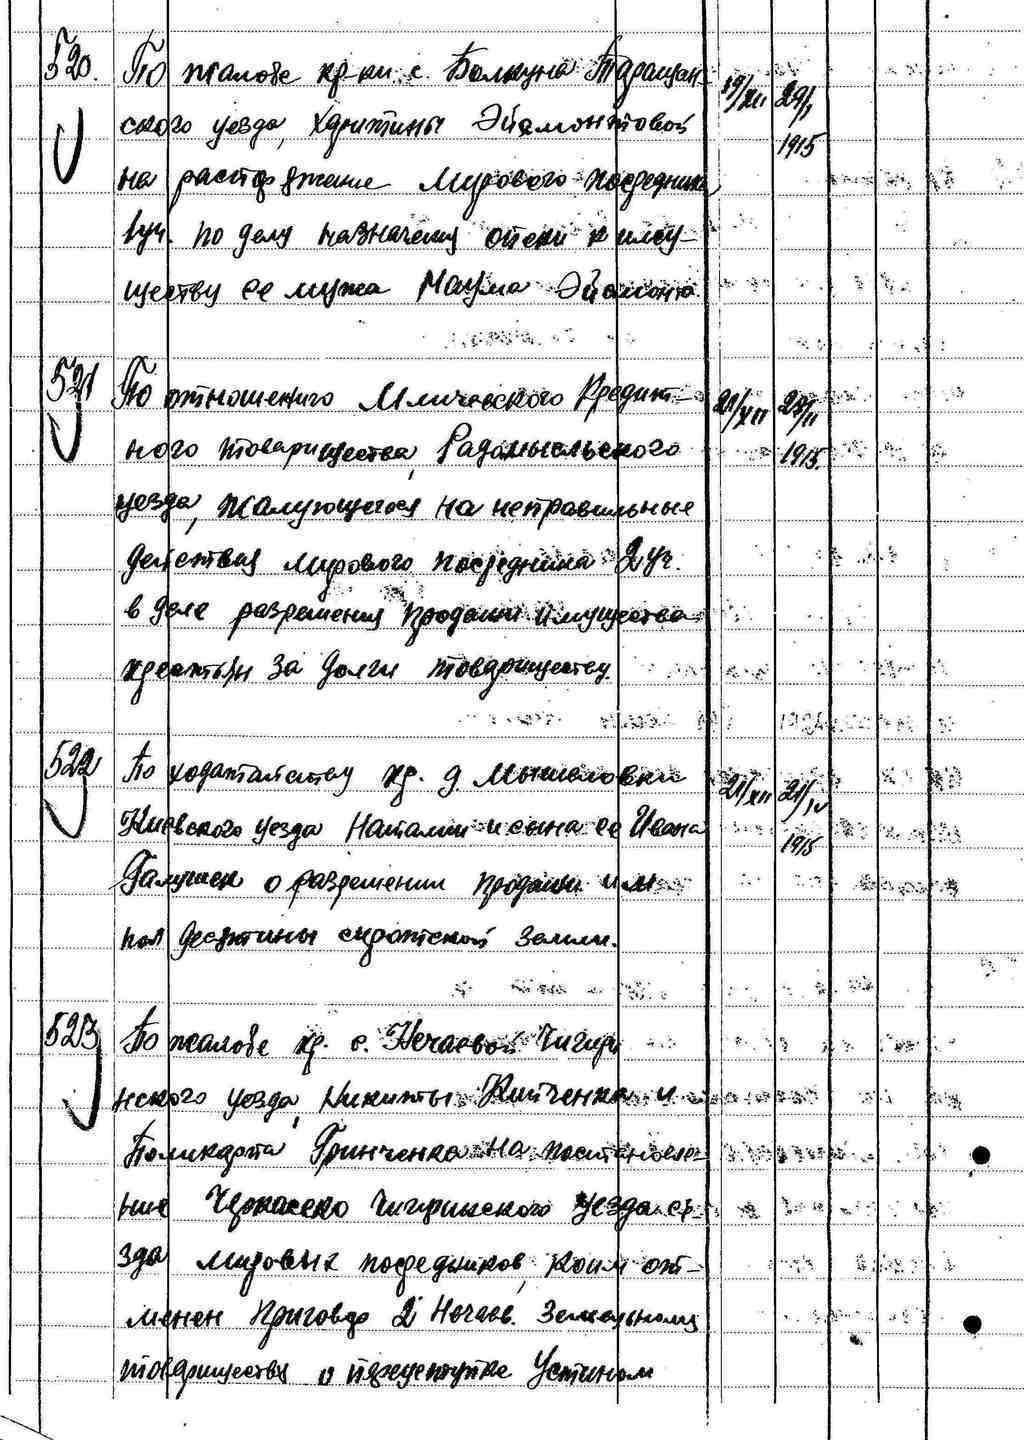 520. По жалобе кр-ки с. Балкуна Таращан-
19/XII 29/I
ского уезда, Харитины Эйсмонтовой
1915
на распоряжение Мирового посредника
1 уч. по делу назначения опеки к иму-
ществу ее мужа Наума Эйсмонта
521 По отношению Кредит-
21/XII 23/II
ного товарищества, Радомысльского
1915.
уезда, жалующегося на неправильные
действия мирового посредника 2 уч.
в деле разрешения продажи имущества
крестьян за долги товариществу.
522 По ходатайству кр. д. Мышеловки
21/XII 21/IV
Киевского уезда Наталии и сына ее Ивана
1915
Галушек о разрешении продажи им
пол десятины сиротской земли.
523 По жалобе кр. с. Нечаевой Чигири
нского уезда, Никиты Китченка и
Поликарпа Гринченка на постановле-
ние Черкасско Чигиринского уезда съе-
зда мировых посредников, коим от-
менен приговор 2 Нечаев. Земельному
товарищества о переуступке Устином